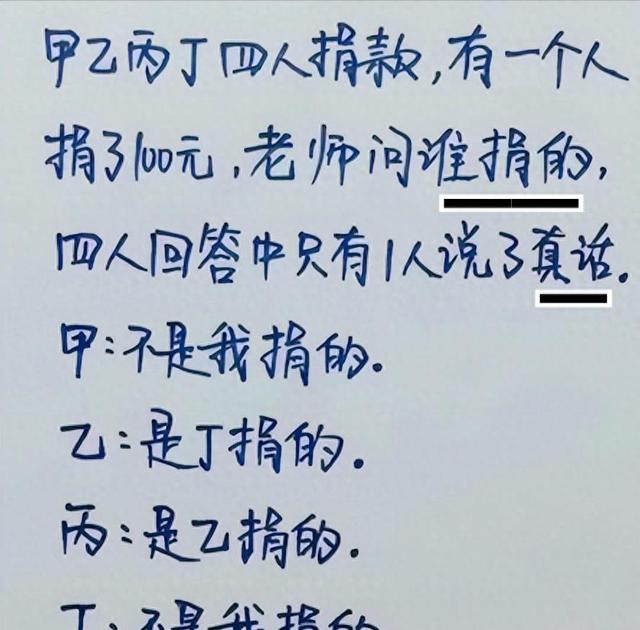 甲乙丙丁四人捐款,有一个人
捐了100元,老师问谁捐的,
四人回答中只有1人说了真话.
甲:不是我捐的.
乙:是丁捐的.
丙:是乙捐的.
丁:不是我捐的